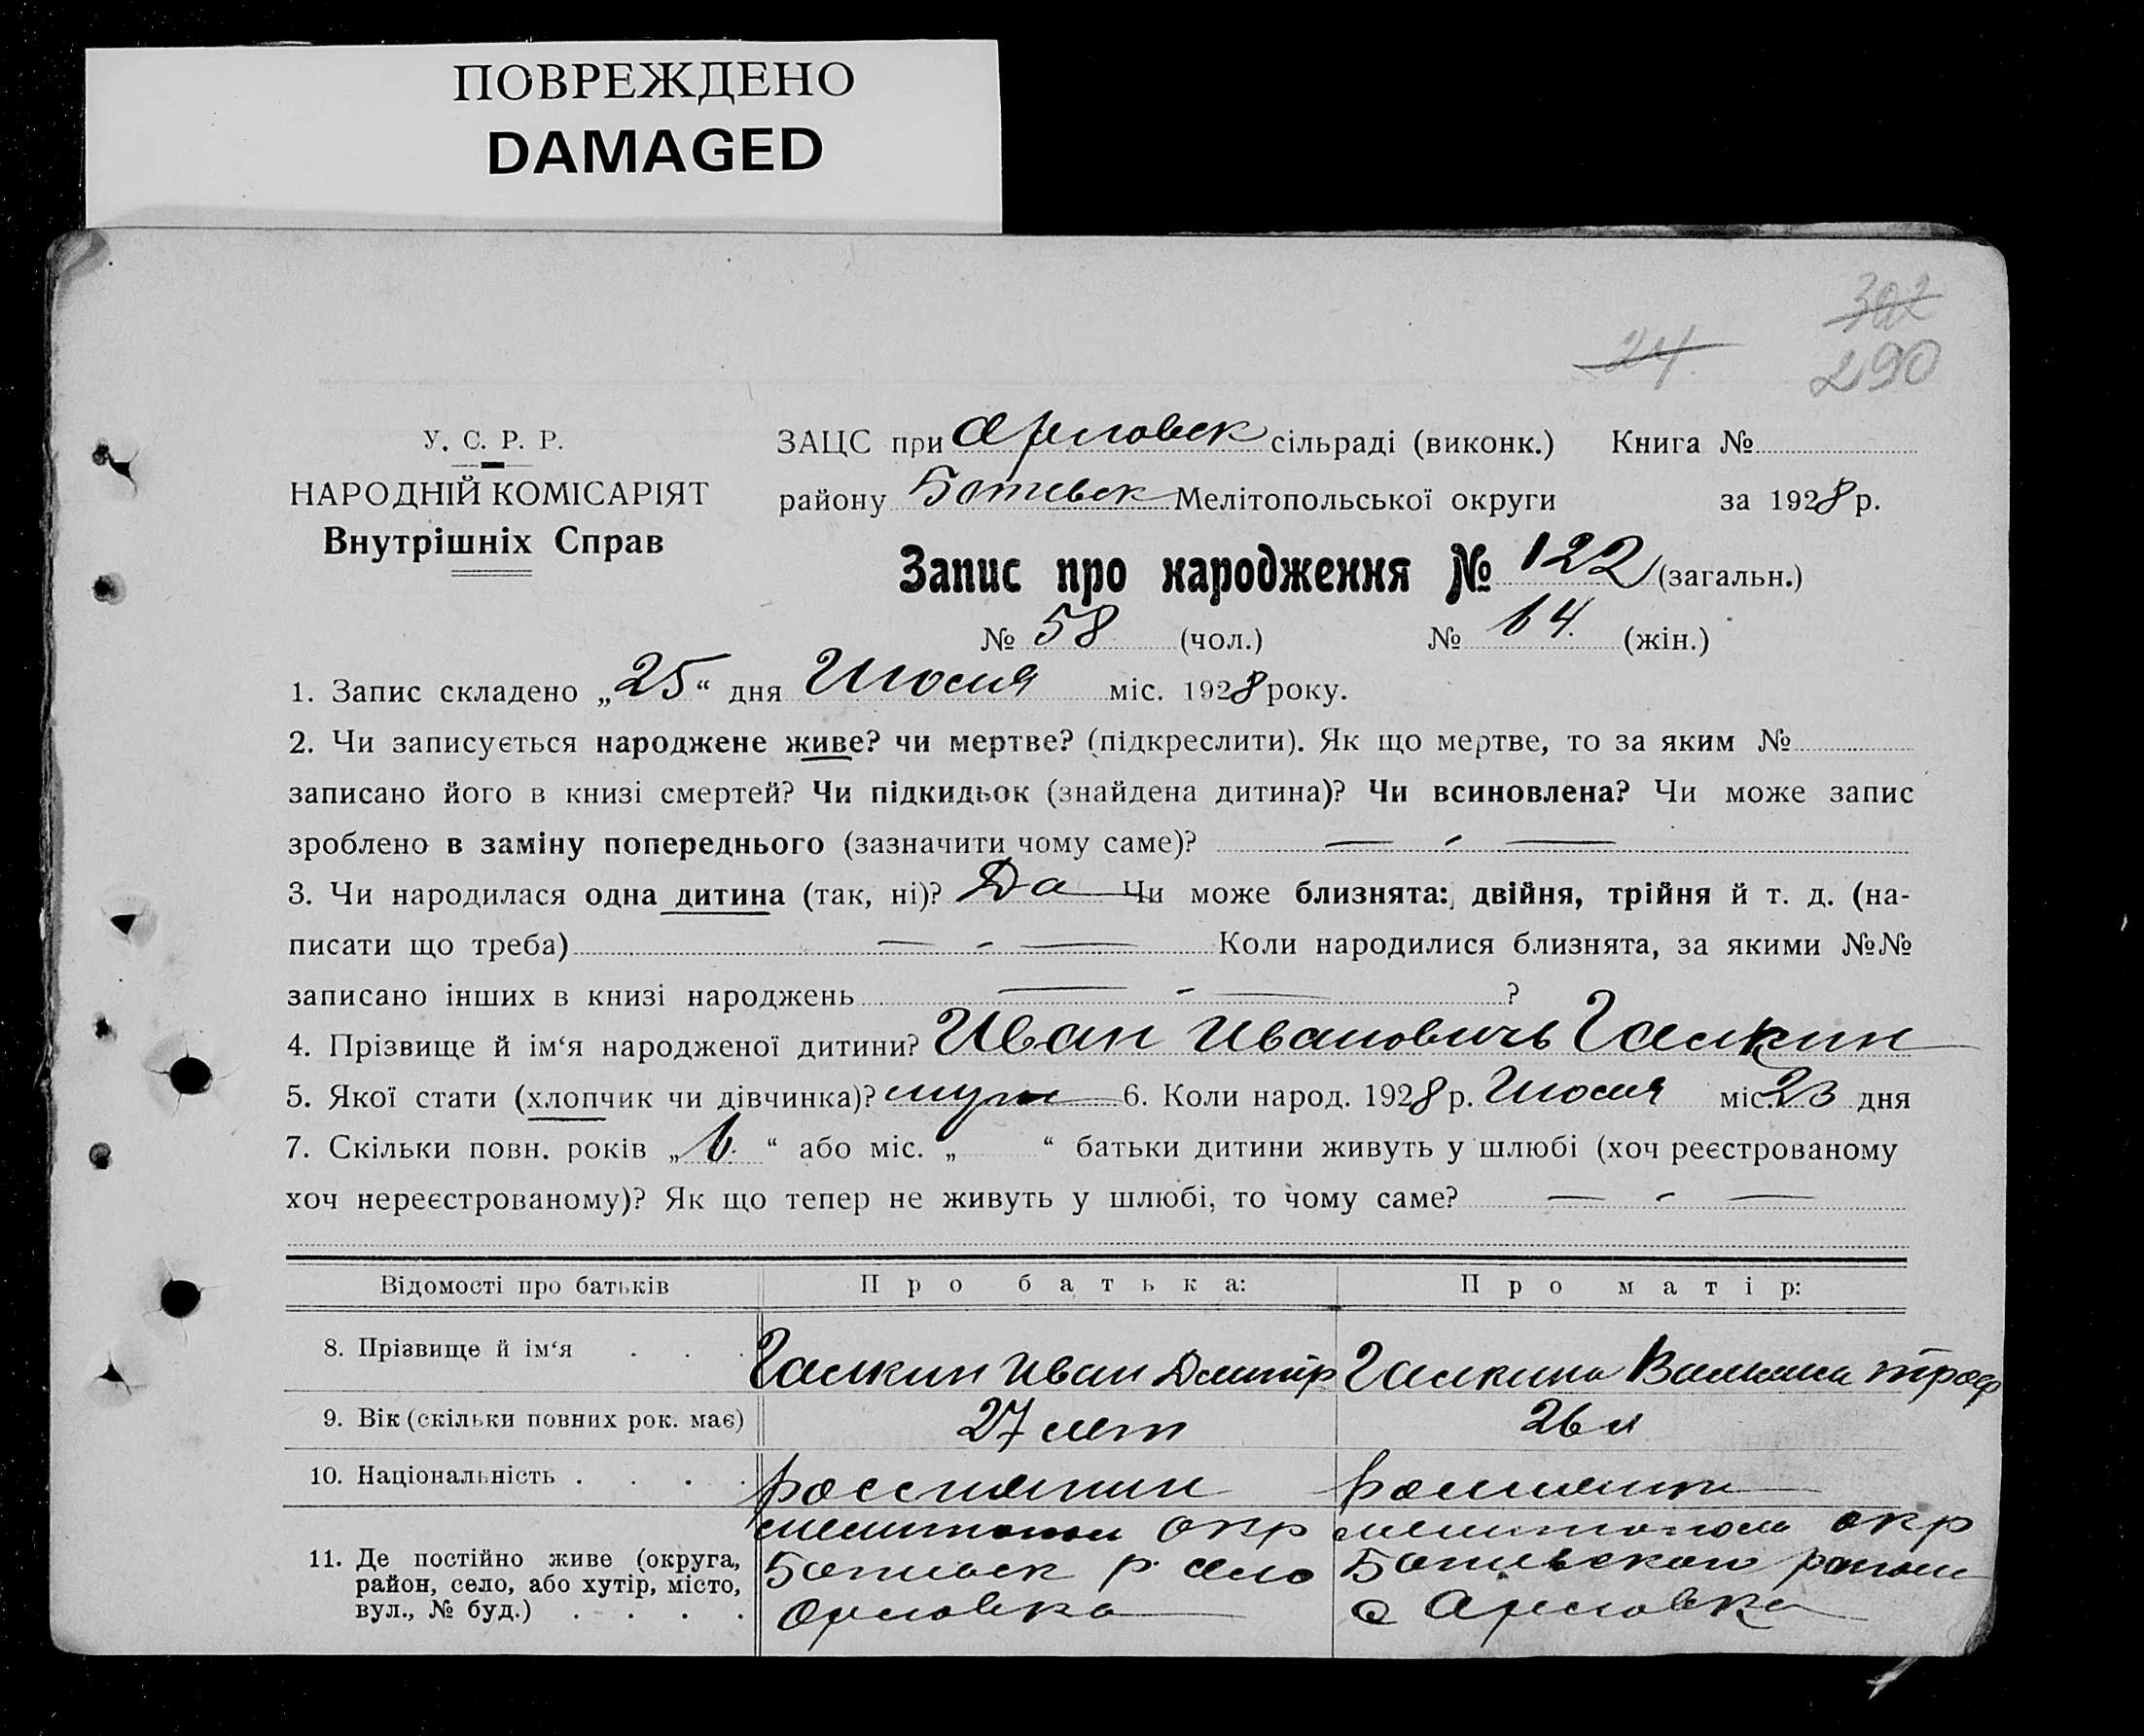 ПОВРЕЖДЕНО
DAMAGED
302
24.
290
У. С. Р. Р.
НАРОДНІЙ КОМІСАРІЯТ
Внутрішніх Справ
ЗАЦС при Орловск сільраді (виконк.) Книга №
району Ботевск Мелітопольської округи за 1928 р.
Запис про народження № 122 (загальн.)
№ 58 (чол.) № 64. (жін.)
1. Запис складено „25“ дня Июля міс. 1928 року.
2. Чи записується народжене живе? чи мертве? (підкреслити). Як що мертве, то за яким №
записано його в книзі смертей? Чи підкидьок (знайдена дитина)? Чи всиновлена? Чи може запис
зроблено в заміну попереднього (зазначити чому саме)? — - —
3. Чи народилася одна дитина (так, ні)? Да Чи може близнята: двійня, трійня й т. д. (на-
писати що треба) — - — Коли народилися близнята, за якими №№
записано інших в книзі народжень — - — ?
4. Прізвище й ім‘я народженої дитини? Иван Ивановичь Галкин
5. Якої стати (хлопчик чи дівчинка)? муж 6. Коли народ. 1928 р. Июля міс. 23 дня
7. Скільки повн. років „6.“ або міс. „ “ батьки дитини живуть у шлюбі (хоч реєстрованому
хоч нереєстрованому)? Як що тепер не живуть у шлюбі, то чому саме? — - —
Відомості про батьків Про батька: Про матір:
8. Прізвище й ім‘я . . . Галкин Иван Дмитр Галкина Троф
9. Вік (скільки повних рок. має) 27 лет 26 л
10. Національність . . . . россиянин россиянк
11. Де постійно живе (округа, район, село, або хутір, місто, вул., № буд.) . . . .
мелитопол окр
Ботиевск р село
Орловка
мелитополь окр
Ботиевского район
с Орловка